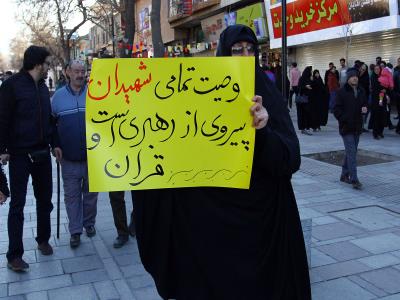 مرکز خرید و
وصیت تمامی شهیدان
پیروی از رهبری است
و
قرآن